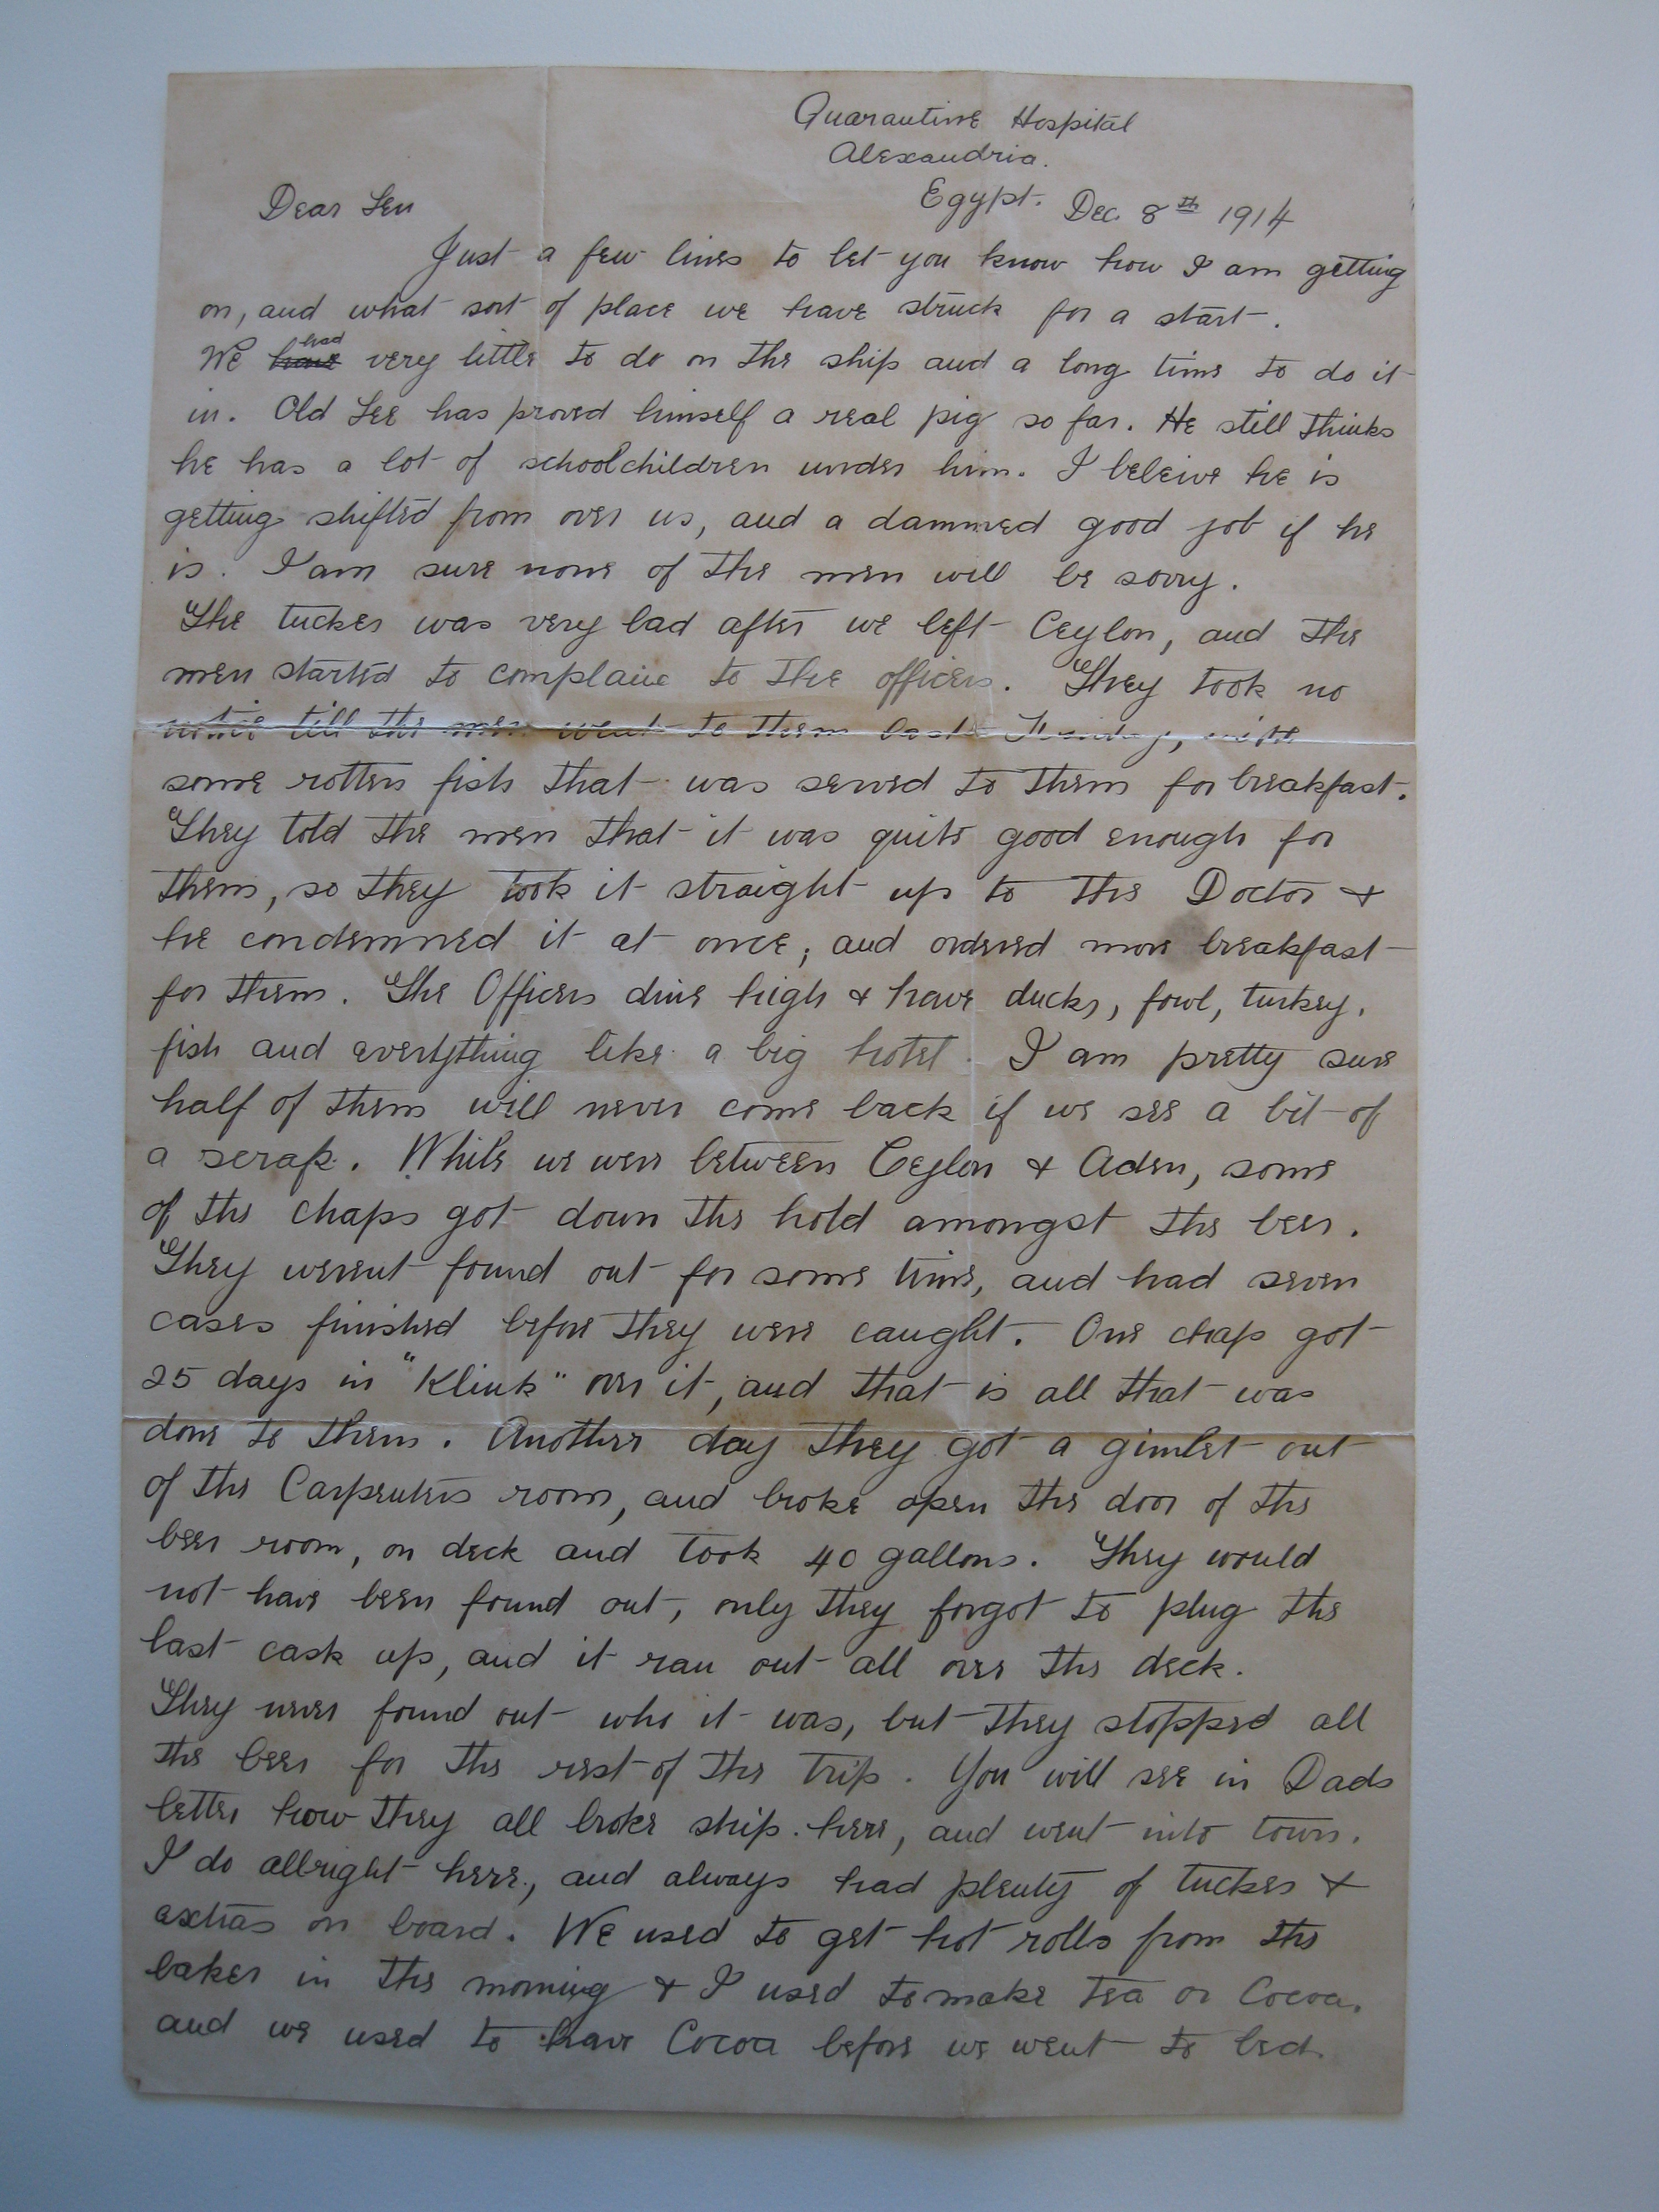 Quarantine Hospital
Alexandria.
Egypt. Dec. 8th 1914
Dear Len
Just a few lines to let you know how I am getting
on, and what sort of place we have struck for a start.
We have had very little to do on the ship and a long time to do it
in. Old Lee has proved himself a real pig so far. He still thinks
he has a lot of schoolchildren under him. I beleive he is
getting shifted from over us, and a dammed good job if he
is. I am sure none of the men will be sorry.
The tucker was very bad after we left Ceylon, and the
men started to complain to the officers. They took no
notice till the men went to them last, with
some rotten fish that was served to them for breakfast.
They told the men that it was quite good enough for
them, so they took it straight up to the Doctor &
he condemned it at once; and ordered more breakfast
for them. The Officers dine high & have ducks, fowl, turkey,
fish and everything like a big hotel. I am pretty sure
half of them will never come back if we see a bit of
a scrap. While we were between Ceylon & Aden, some
of the chaps got down the hold amongst the beer.
They werent found out for some time, and had seven
cases finished before they were caught. One chap got
25 days in "Klink" over it, and that is all that was
done to them. Another day they got a gimlet out
of the Carpenters room, and broke open the door of the
beer room, on deck and took 40 gallons. They would
not have been found out, only they forgot to plug the
last cask up, and it ran out all over the deck.
They never found out who it was, but they stopped all
the beer for the rest of the trip. You will see in Dads
letter how they all broke ship here, and went into town.
I do allright here, and always had plenty of tucker &
extras on board. We used to get hot rolls from the
baker in the morning & I used to make tea or Cocoa,
and we used to have Cocoa before we went to bed.